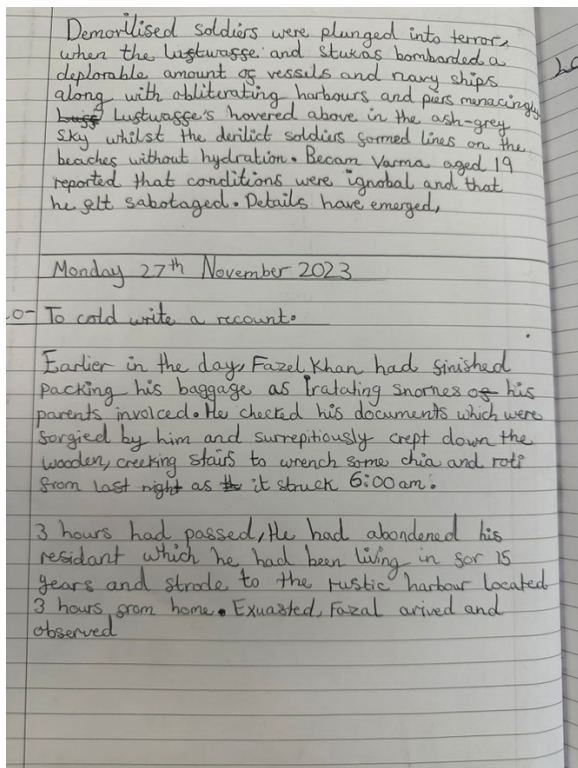 Demorilised soldiers were plunged into terror,
when the Lustwasse and Stukas bombarded a
deplorable amount of vessels and navy ships
along with obliterating harbours and piers menacingly
Lustwasse's hovered above in the ash-grey
sky whilst the derilict soldiers formed lines on the
beaches without hydration. Becam Varma aged 19
reported that conditions were ignobal and that
he felt sabotaged. Details have emerged,
Monday 27th November 2023
LO- To cold write a recount.
Earlier in the day, Fazel Khan had finished
packing his baggage as iratating snornes of his
parents involced. He checked his documents which were
forgied by him and surrepitiously crept down the
wooden, creeking stairs to wrench some chia and roti
from last night as it struck 6:00am.
3 hours had passed, He had abondened his
residant which he had been living in for 15
years and strode to the rustic harbour located
3 hours from home. Exuasted, Fazal arived and
observed